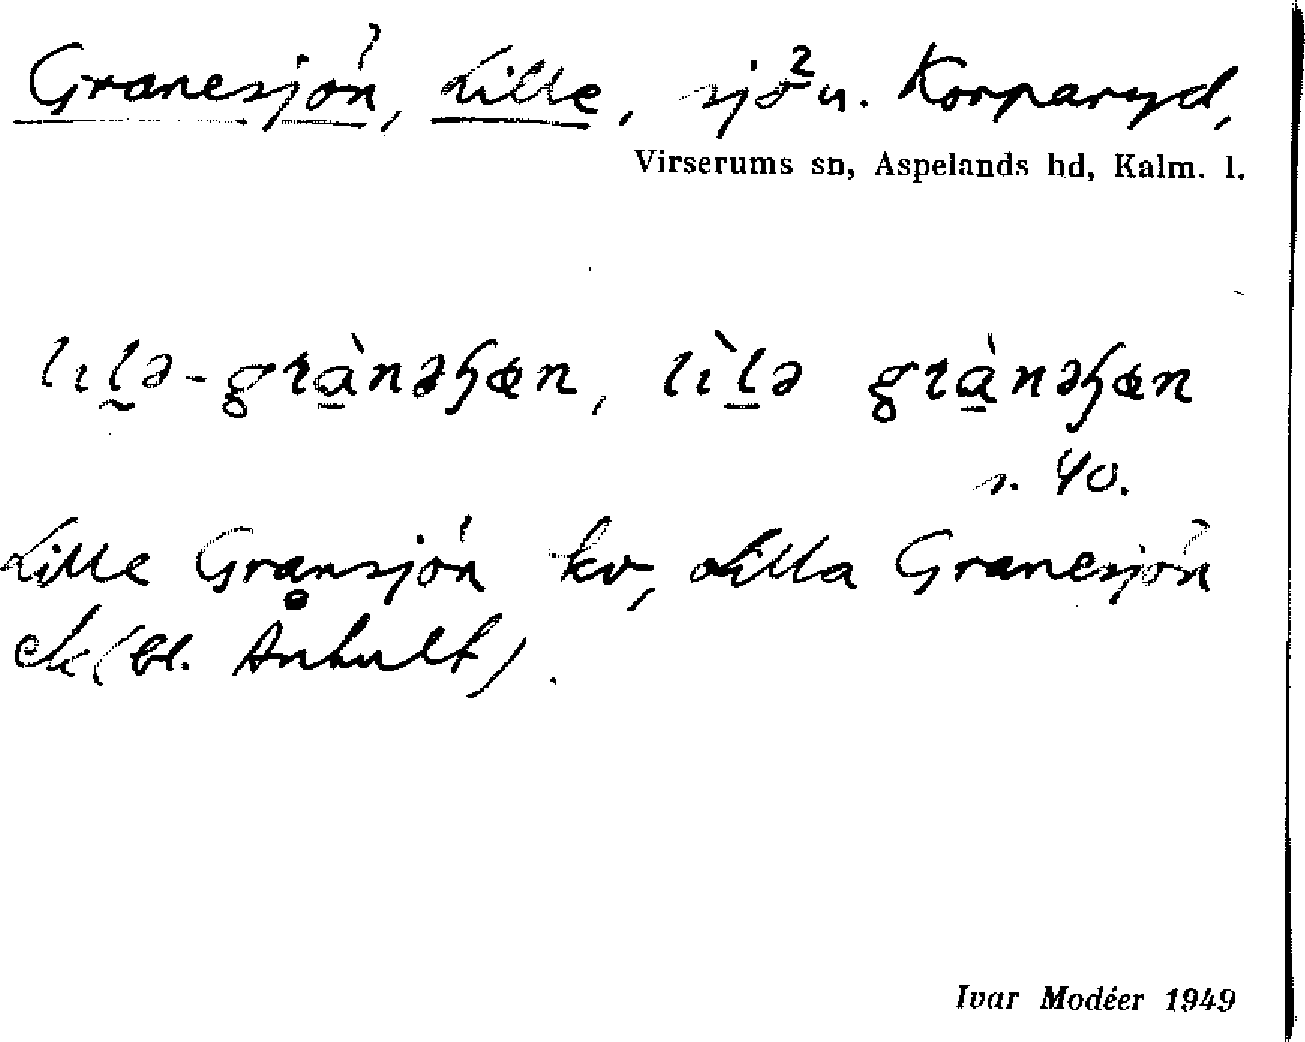 Granesjön, Lille, sjö² u. Korparyd,
Virserums sn, Aspelands hd, Kalm. l.
lılə-grànəɧœn, lìlə grànəɧœn
s. 40.
Lille Gransjön kv, Lilla Granesjön
ek (bl. Ånhult).
Ivar Modéer 1949